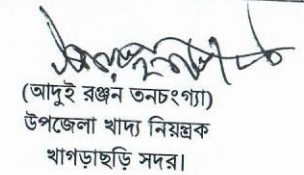 (আদুই রঞ্জন তনচংগ্যা)
উপজেলা খাদ্য নিয়ন্ত্রক
খাগড়াছড়ি সদর।